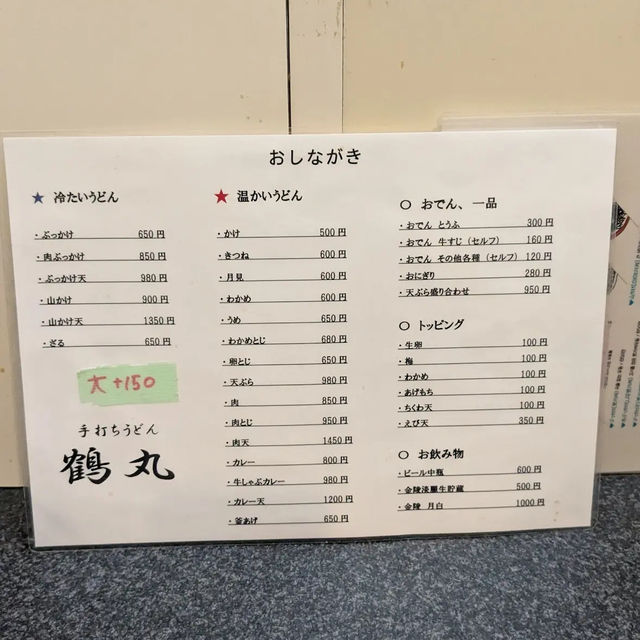 おしながき
★ 冷たいうどん
・ぶっかけ 650円
・肉ぶっかけ 850円
・ぶっかけ天 980円
・山かけ 900円
・山かけ天 1350円
・ざる 650円
大 +150
手打ちうどん
鶴丸
★ 温かいうどん
・かけ 500円
・きつね 600円
・月見 600円
・わかめ 600円
・うめ 650円
・わかめとじ 680円
・卵とじ 650円
・天ぷら 980円
・肉 850円
・肉とじ 950円
・肉天 1450円
・カレー 800円
・牛しゃぶカレー 980円
・カレー天 1200円
・釜あげ 650円
○ おでん、一品
・おでん とうふ 300円
・おでん 牛すじ（セルフ） 160円
・おでん その他各種（セルフ） 120円
・おにぎり 280円
・天ぷら盛り合わせ 950円
○ トッピング
・生卵 100円
・梅 100円
・わかめ 100円
・あげもち 100円
・ちくわ天 100円
・えび天 350円
○ お飲み物
・ビール中瓶 600円
・金陵淡麗生貯蔵 500円
・金陵 月白 1000円